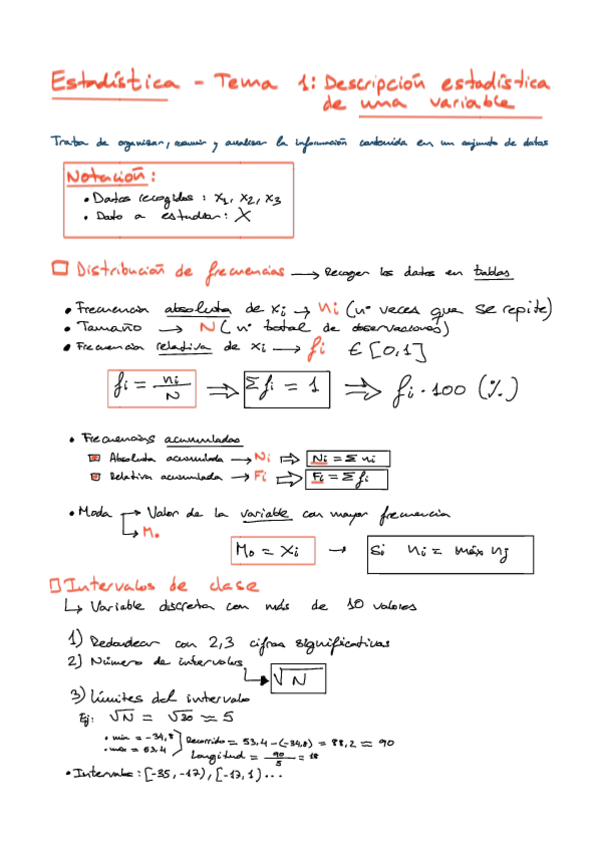 Estadística - Tema 1: Descripción estadística
de una variable
Trata de organizar, resumir y analizar la información contenida en un conjunto de datos
Notación:
• Datos recogidos: x₁, x₂, x₃
• Dato a estudiar: X
Distribución de frecuencias → Recoger los datos en tablas
• Frecuencia absoluta de xi → ni (nº veces que se repite)
• Tamaño → N (nº total de observaciones)
• Frecuencia relativa de xi → fi ∈ [0,1]
fi = ni/N ⇒ Σfi = 1 ⇒ fi · 100 (%)
• Frecuencias acumuladas
Absoluta acumulada → Ni ⇒ Ni = Σ ni
Relativa acumulada → Fi ⇒ Fi = Σ fi
• Moda → Valor de la variable con mayor frecuencia
↳ Mo
Mo = xi → Si ni = máx nj
Intervalos de clase
↳ Variable discreta con más de 10 valores
1) Redondear con 2,3 cifras significativas
2) Número de intervalos
√N
3) Límites del intervalo
Ej: √N = √30 ≈ 5
• min = -34,8
• max = 53,4
Recorrido = 53,4 - (-34,8) = 88,2 ≈ 90
Longitud = 90/5 = 18
• Intervalo: [-35, -17), [-17, 1) ...